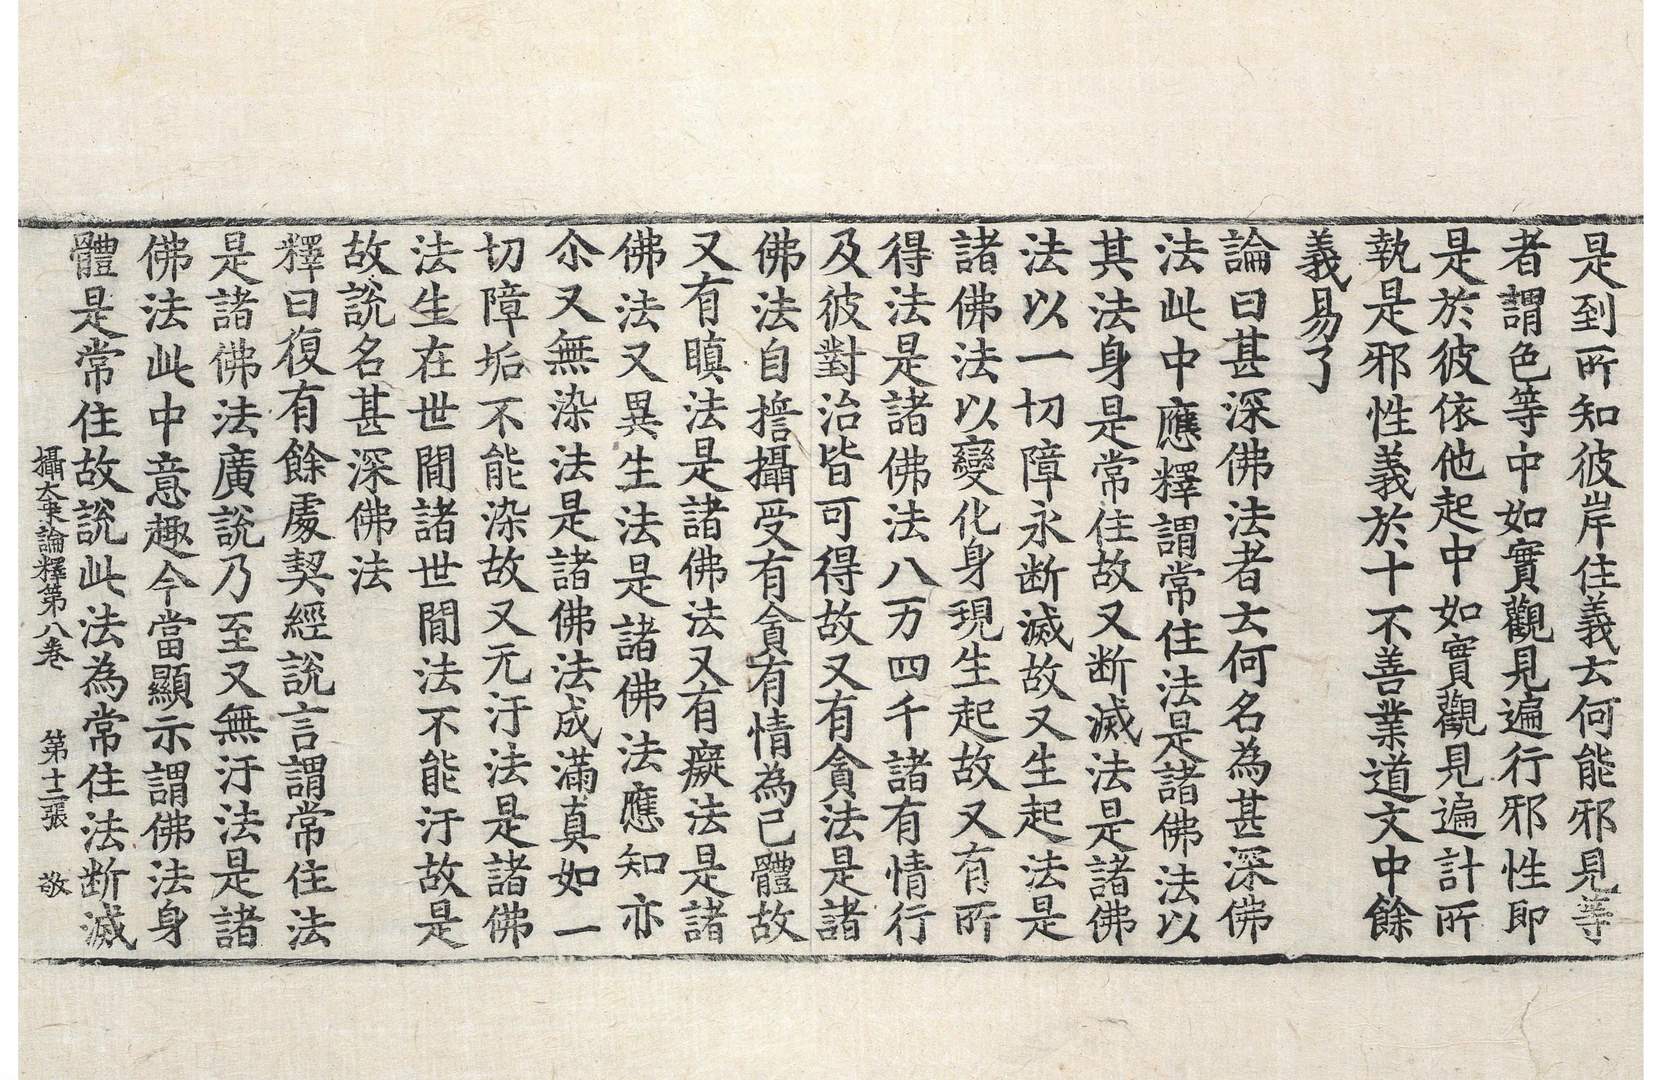 是到所知彼岸住義云何能邪見等
者謂色等中如實觀見遍行邪性即
是於彼依他起中如實觀見遍計所
執是邪性義於十不善業道文中餘
義易了
論曰甚深佛法者云何名為甚深佛
法此中應釋謂常住法是諸佛法以
其法身是常住故又断滅法是諸佛
法以一切障永断滅故又生起法是
諸佛法以變化身現生起故又有所
得法是諸佛法八万四千諸有情行
及彼對治皆可得故又有貪法是諸
佛法自誓攝受有貪有情為己體故
又有瞋法是諸佛法又有癡法是諸
佛法又異生法是諸佛法應知亦
尒又無染法是諸佛法成滿真如一
切障垢不能染故又无汙法是諸佛
法生在世間諸世間法不能汙故是
故說名甚深佛法
釋曰復有餘處契經說言謂常住法
是諸佛法廣說乃至又無汙法是諸
佛法此中意趣今當顯示謂佛法身
體是常住故說此法為常住法断滅
攝大乘論釋第八卷 第十二張 敬